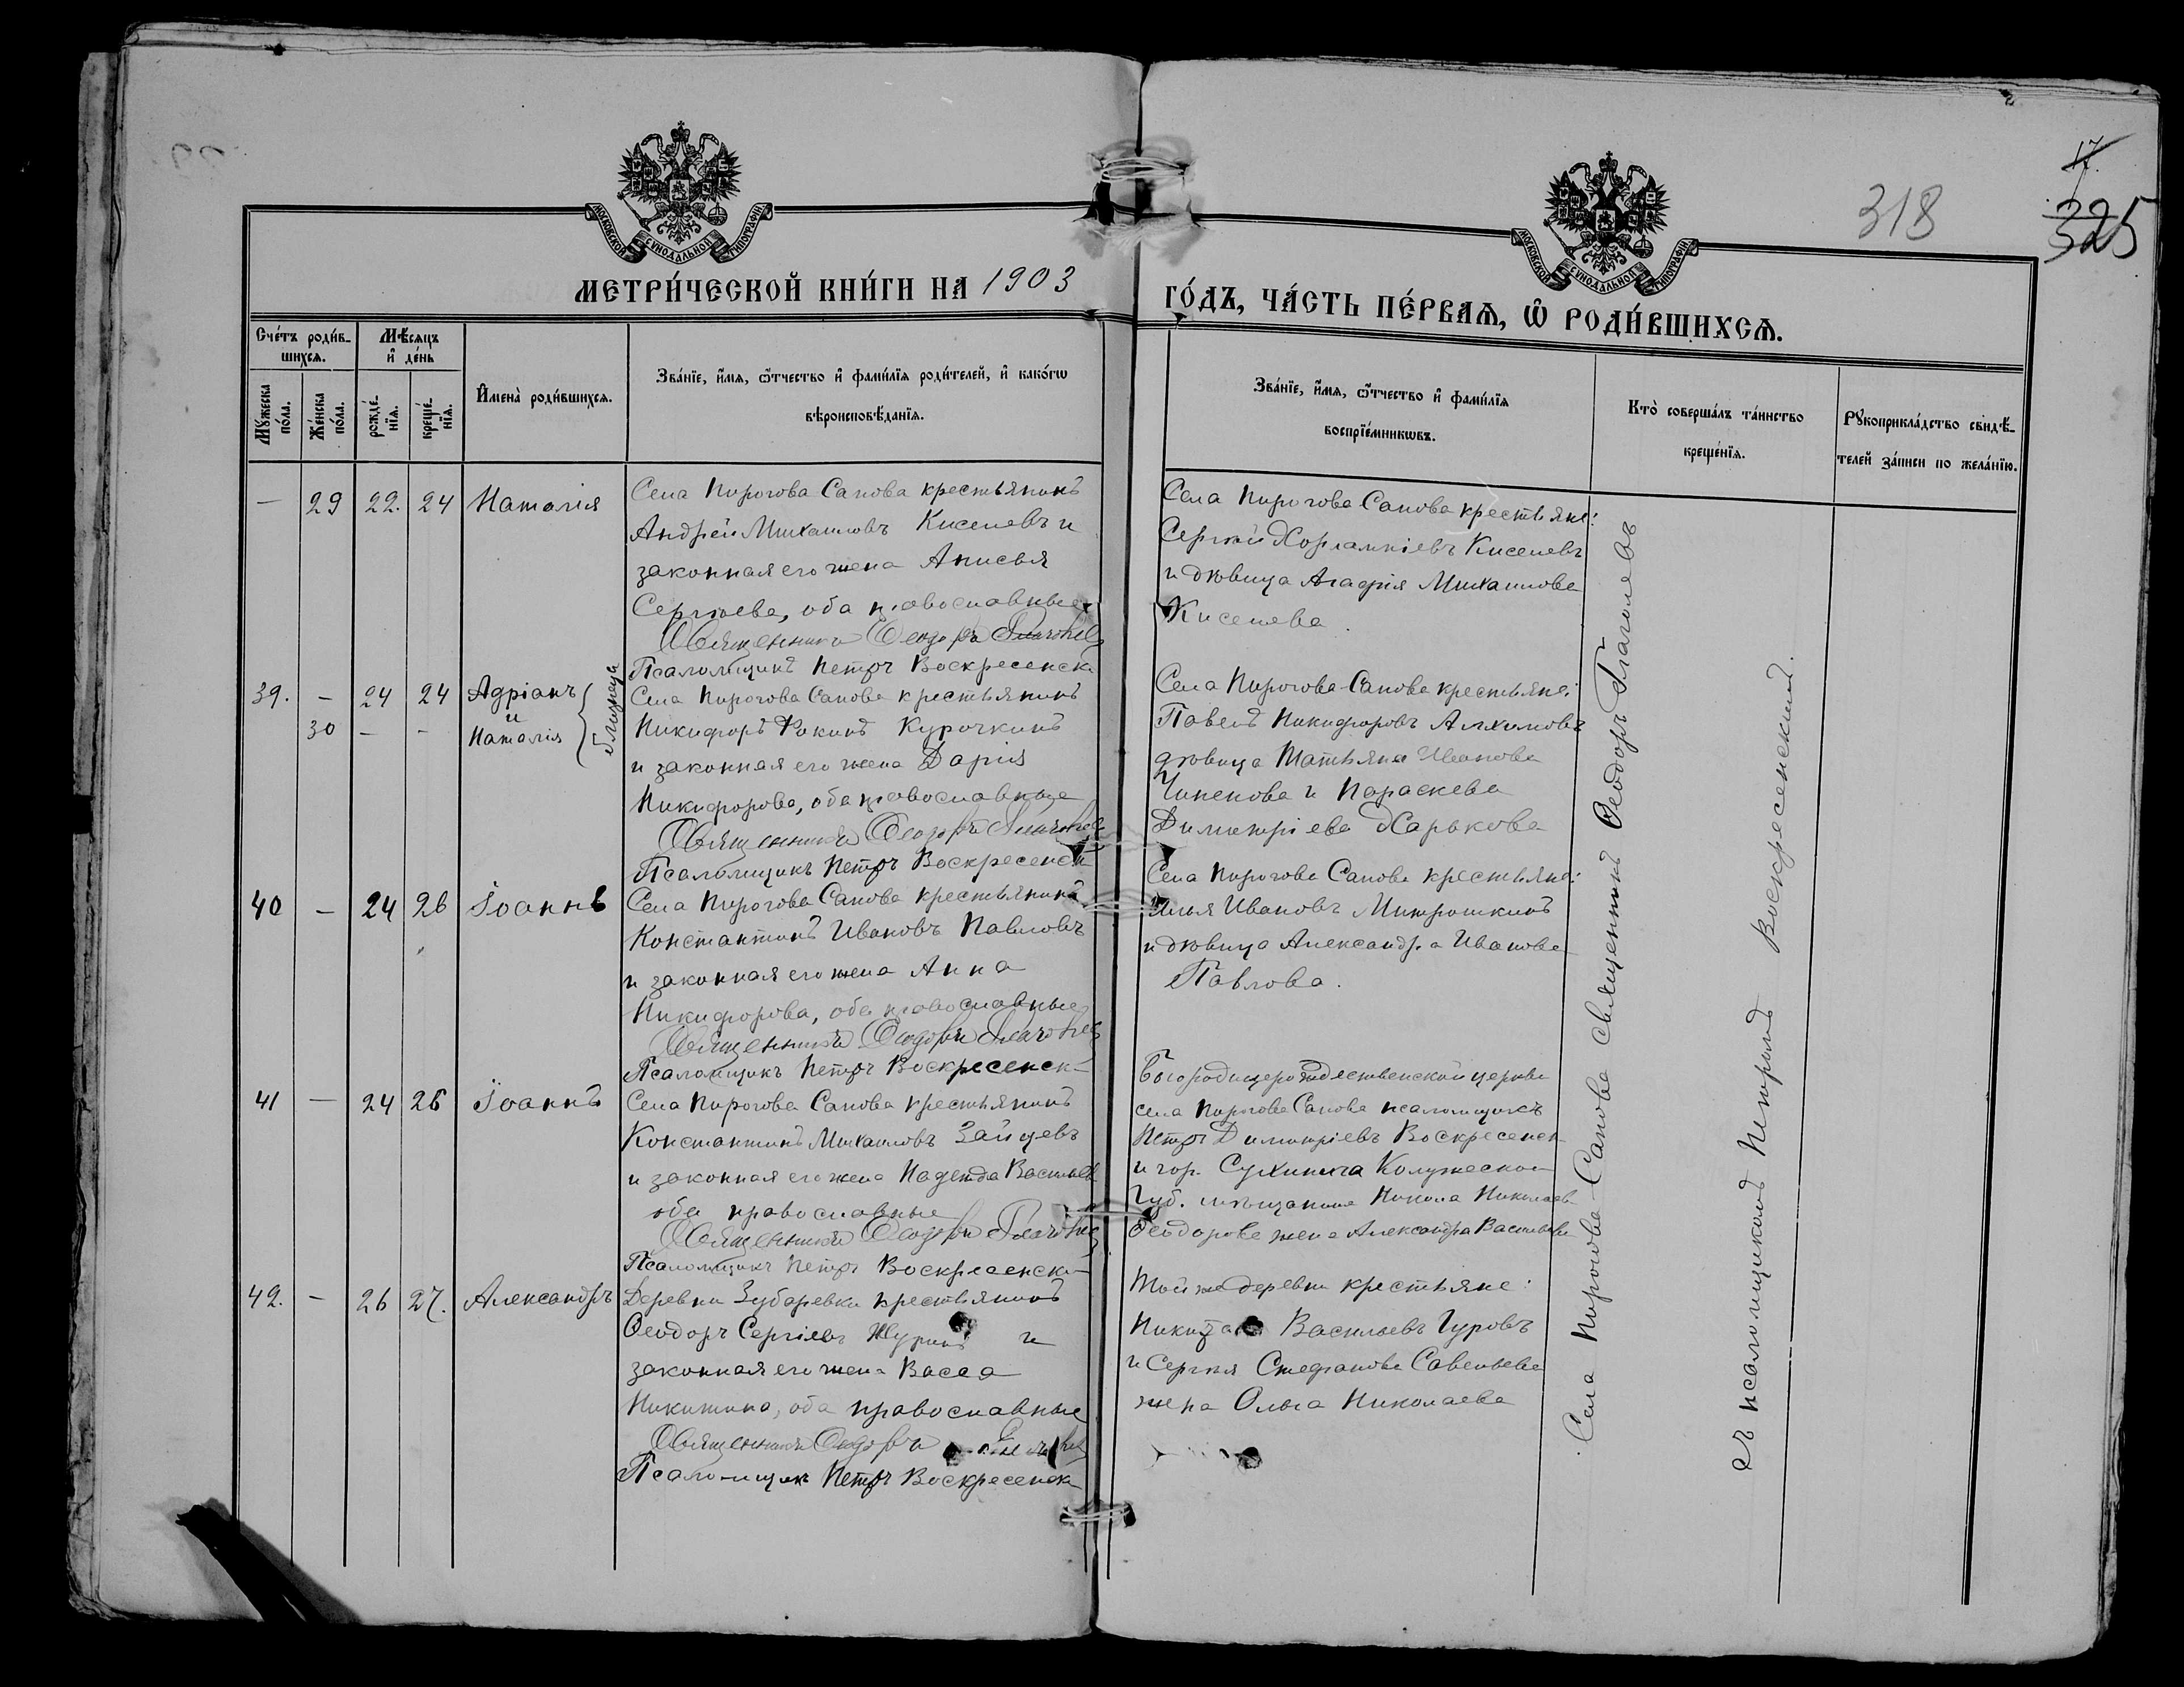 МОСКОВСКОЙ СУНОДАЛЬНОЙ ТИПОГРАФІИ
МОСКОВСКОЙ СУНОДАЛЬНОЙ ТИПОГРАФІИ
17.
318
325
МЕТРИ́ЧЕСКОЙ КНИ́ГИ НА 1903
ГО́ДЪ, ЧА́СТЬ ПЕ́РВАѦ, Ѡ҆ РОДИ́ВШИХСѦ.
Сче́тъ роди́в-
шихсѧ.
Мѣ́сяцъ
и҆ де́нь
Мꙋ́жеска
по́ла.
Же́нска
по́ла.
рожде́-
нїѧ.
креще́-
нїѧ.
И҆мена̀ роди́вшихсѧ.
Зва́нїе, и҆́мѧ, ѻ҆́тчество и҆ фами́лїѧ роди́телей, и҆ како́гѡ
вѣроисповѣ́данїѧ.
Зва́нїе, и҆́мѧ, ѻ҆́тчество и҆ фами́лїѧ
воспрїе́мникѡвъ.
Кто̀ соверша́лъ та́инство
креще́нїѧ.
Рꙋкоприкла́дство свидѣ́-
телей за́писи по жела́нїю.
— 29 22. 24 Наталія
Села Пирогова Сапова крестьянинъ
Андрей Михаиловъ Киселевъ и
законная его жена Анисья
Сергѣева, оба православные
Священникъ Ѳеодоръ Глаголевъ
Псаломщикъ Петръ Воскресенск
Села Пирогова-Сапова крестьяне:
Сергѣй Харлампіевъ Киселевъ
и дѣвица Агафія Михаилова
Киселева.
39. — 24 24 Адріанъ
и
30 — — Наталія
близнецы
Села Пирогова Сапова крестьянинъ
Никифоръ Фокинъ Курочкинъ
и законная его жена Дарія
Никифорова, оба православные
Священникъ Ѳеодоръ Глаголевъ
Псаломщикъ Петръ Воскресенск
Села Пирогова-Сапова крестьяне:
Павелъ Никифоровъ Алхимовъ
дѣвица Татьяна Иванова
Чиненова и Параскева
Димитріева Харькова
40 — 24 26 Іоаннъ
Села Пирогова Сапова крестьянинъ
Константинъ Ивановъ Павловъ
и законная его жена Анна
Никифорова, оба православные
Священникъ Ѳеодоръ Глаголевъ
Псаломщикъ Петръ Воскресенск
Села Пирогова Сапова крестьяне:
Илья Ивановъ Митрошкинъ
и дѣвица Александра Иванова
Павлова.
41 — 24 26 Іоаннъ
Села Пирогова Сапова крестьянинъ
Константинъ Михаиловъ Зайцевъ
и законная его жена Надежда Васильев
оба православные
Священникъ Ѳеодоръ Глаголевъ
Псаломщикъ Петръ Воскресенск
Богородицерождественской церкви
села Пирогова Сапова псаломщикъ
Петръ Димитріевъ Воскресенск
и гор. Сухинича Калужской
Губ. мѣщанина Николаев
Ѳеодорова жена Александра Васильева
42. — 26 27. Александръ
Деревни Зубаревки крестьянинъ
Ѳеодоръ Сергіевъ и
законная его жена Васса
Никитина, оба православные
Священникъ Ѳеодоръ
Псаломщикъ Петръ Воскресенск
Той же деревни крестьяне:
Никита Васильевъ Гуровъ
и Сергѣя Стефанова Савельева
жена Ольга Николаева
Села Пирогова-Сапова священникъ Ѳеодоръ Глаголевъ
съ псаломщикомъ Петромъ Воскресенскимъ.